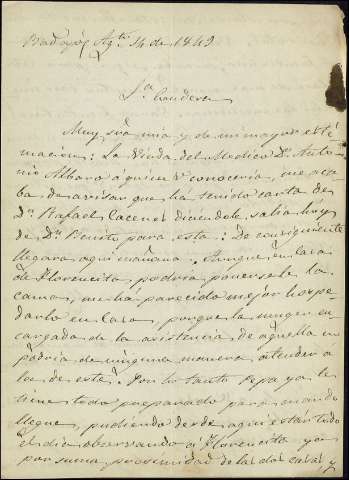 Badajoz Agto. 14 de 1849
Sa.
Muy sra mia y de mi mayor esti
macion: La Viuda del Medico Dn. Anto-
nio Albaro a quien V conoceria, me aca
ba de avisar que ha tenido carta de
Dn. Rafael Caceres diciendole salia hoy
de Dn. Benito para esta: De consiguiente
llegara aqui mañana. Aunque en casa
de Florencita podria ponersele la
cama, me ha parecido mejor hospe-
darlo en casa, porque la muger en
cargada de la asistencia de aquella no
podria de ninguna manera atender a
la de este. Por lo tanto Pepa ya le
tiene todo preparado para cuando
llegue, pudiendo desde aqui estar todo
el dia observando a Florencita ya
por suma proximidad de las dos casas y